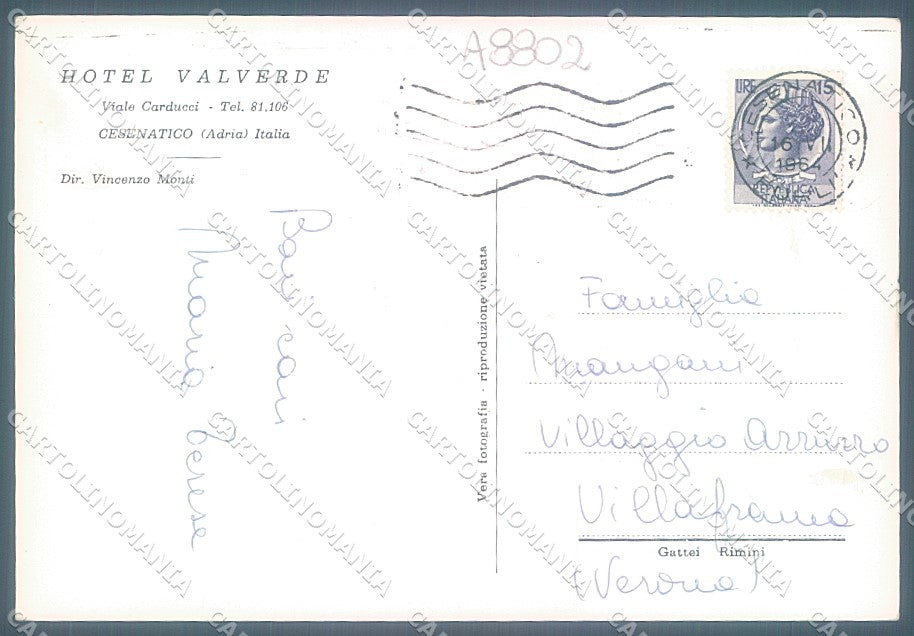 A8802
HOTEL VALVERDE
Viale Carducci - Tel. 81.106
CESENATICO (Adria) Italia
Dir. Vincenzo Monti
Baci cari
Maria Terese
Vera fotografia - riproduzione vietata
LIRE 15
CESENATICO
16 VII
1964
REPUBBLICA
ITALIANA
Famiglia
Mangani
Villaggio Azzurro
Villafranca
Gattei Rimini
(Verona)
CARTOLINOMANIA